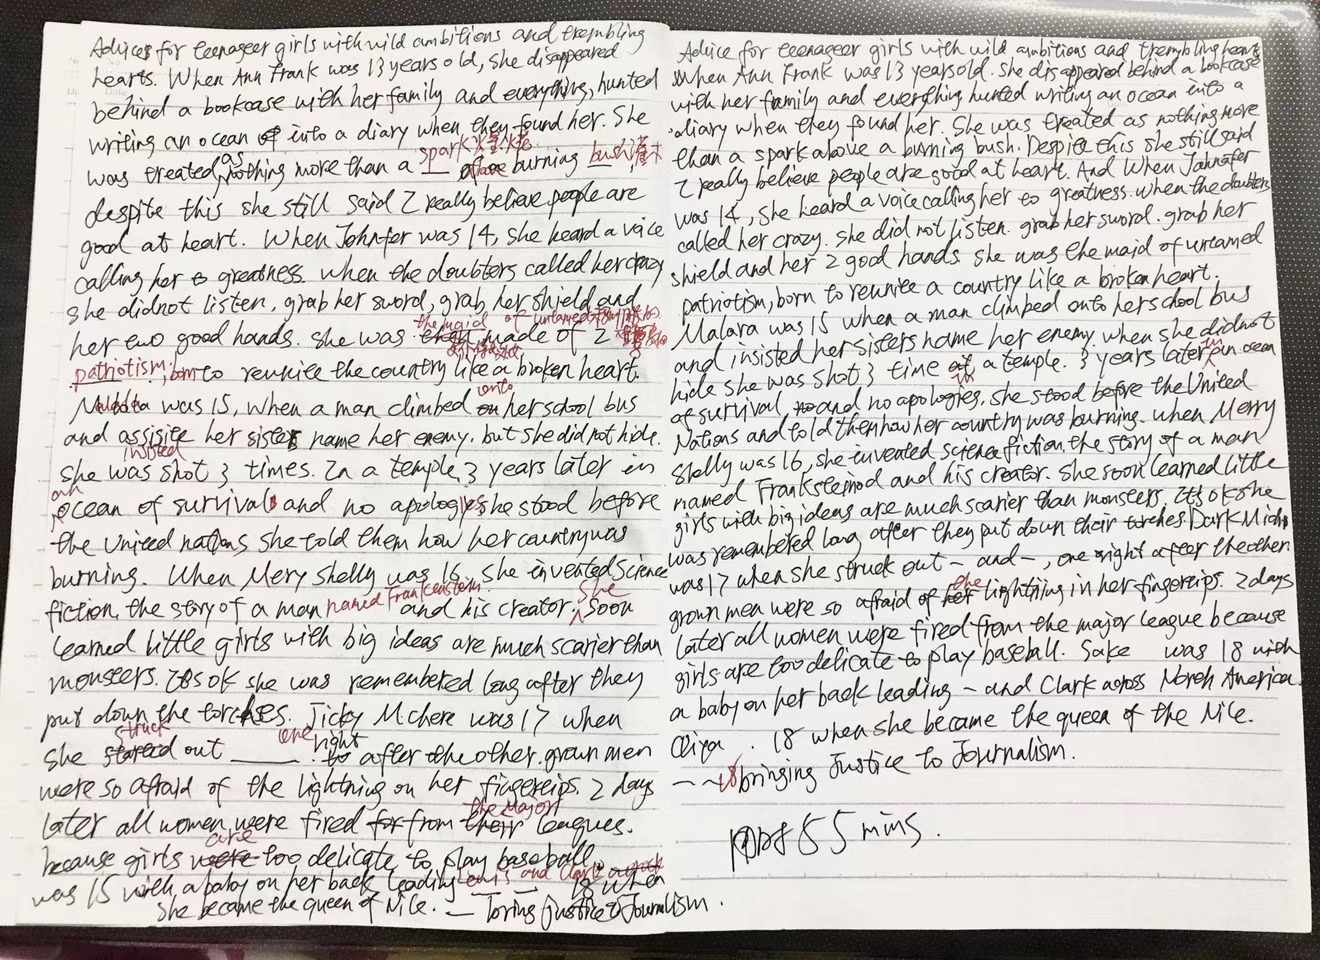 Advices for teenageer girls with wild ambitions and trembling
hearts. When Ann Frank was 13 years old, she disappeared
behind a bookcase with her family and everything, hunted
writing an ocean of into a diary when they found her. She
was treated as nothing more than a spark 火星,火花 above burning bush 灌木
despite this she still said I really believe people are
good at heart. When Johnfer was 14, she heard a voice
calling her to greatness. when the doubters called her crazy
she didnot listen, grab her sword, grab her shield and
her two good hands. she was the maid of untamed made of 2
patriotism, born to reunite the country like a broken heart.
was 15, when a man climbed onto her school bus
and assisite insisted her sister name her enemy. but she did not hide.
she was shot 3 times. In a temple. 3 years later in
an ocean of survival and no apologies she stood before
the United nations she told them how her country was
burning. When Mery Shelly was 16, she invented science
fiction. the story of a man named frankenstem and his creator. She soon
learned little girls with big ideas are much scarier than
monsters. It's ok she was remembered long after they
put down the torches. Jicky Mchere was 17 when
she struck out ____ one right after the other. grown men
were so afraid of the lightning on her fingertips. 2 days
later all women were fired for from their the Major leagues.
because girls were are too delicate to play baseball.
was 15 with a baby on her back leading and Clark 18 when
she became the queen of Nile. — toring justice to Journalism.
Advice for teenager girls with wild ambitions and trembling heart
when Ann Frank was 13 years old. She disappeared behind a bookcase
with her family and everything hunted writing an ocean into a
diary when they found her. She was treated as nothing more
than a spark above a burning bush. Despite this she still said
I really believe people are good at heart. And When Johnafer
was 14, she heard a voice calling her to greatness. when the doubters
called her crazy. she did not listen. grab her sword. grab her
shield and her 2 good hands she was the maid of untamed
patriotism, born to reunite a country like a broken heart.
Malara was 15 when a man climbed onto her school bus
and insisted her sisters name her enemy. when she didnot
hide she was shot 3 time in a temple. 3 years later in an ocean
of survival, and no apologies, she stood before the United
Nations and told them how her country was burning. when Merry
Shelly was 16, she invented science fiction. the story of a man
named Franksteinod and his creator. She soon learned little
girls with big ideas are much scarier than monsters. Its ok she
was remembered long after they put down their torches. Dark Mich
was 17 when she struck out — and —, one right after the other
grown men were so afraid of her the lightning in her fingertips. 2 days
later all women were fired from the major league because
girls are too delicate to play baseball. Sake was 18 with
a baby on her back leading — and Clark across North America
18 when she became the queen of the Nile.
— ~ 18 bringing Justice to Journalism.
55 mins.